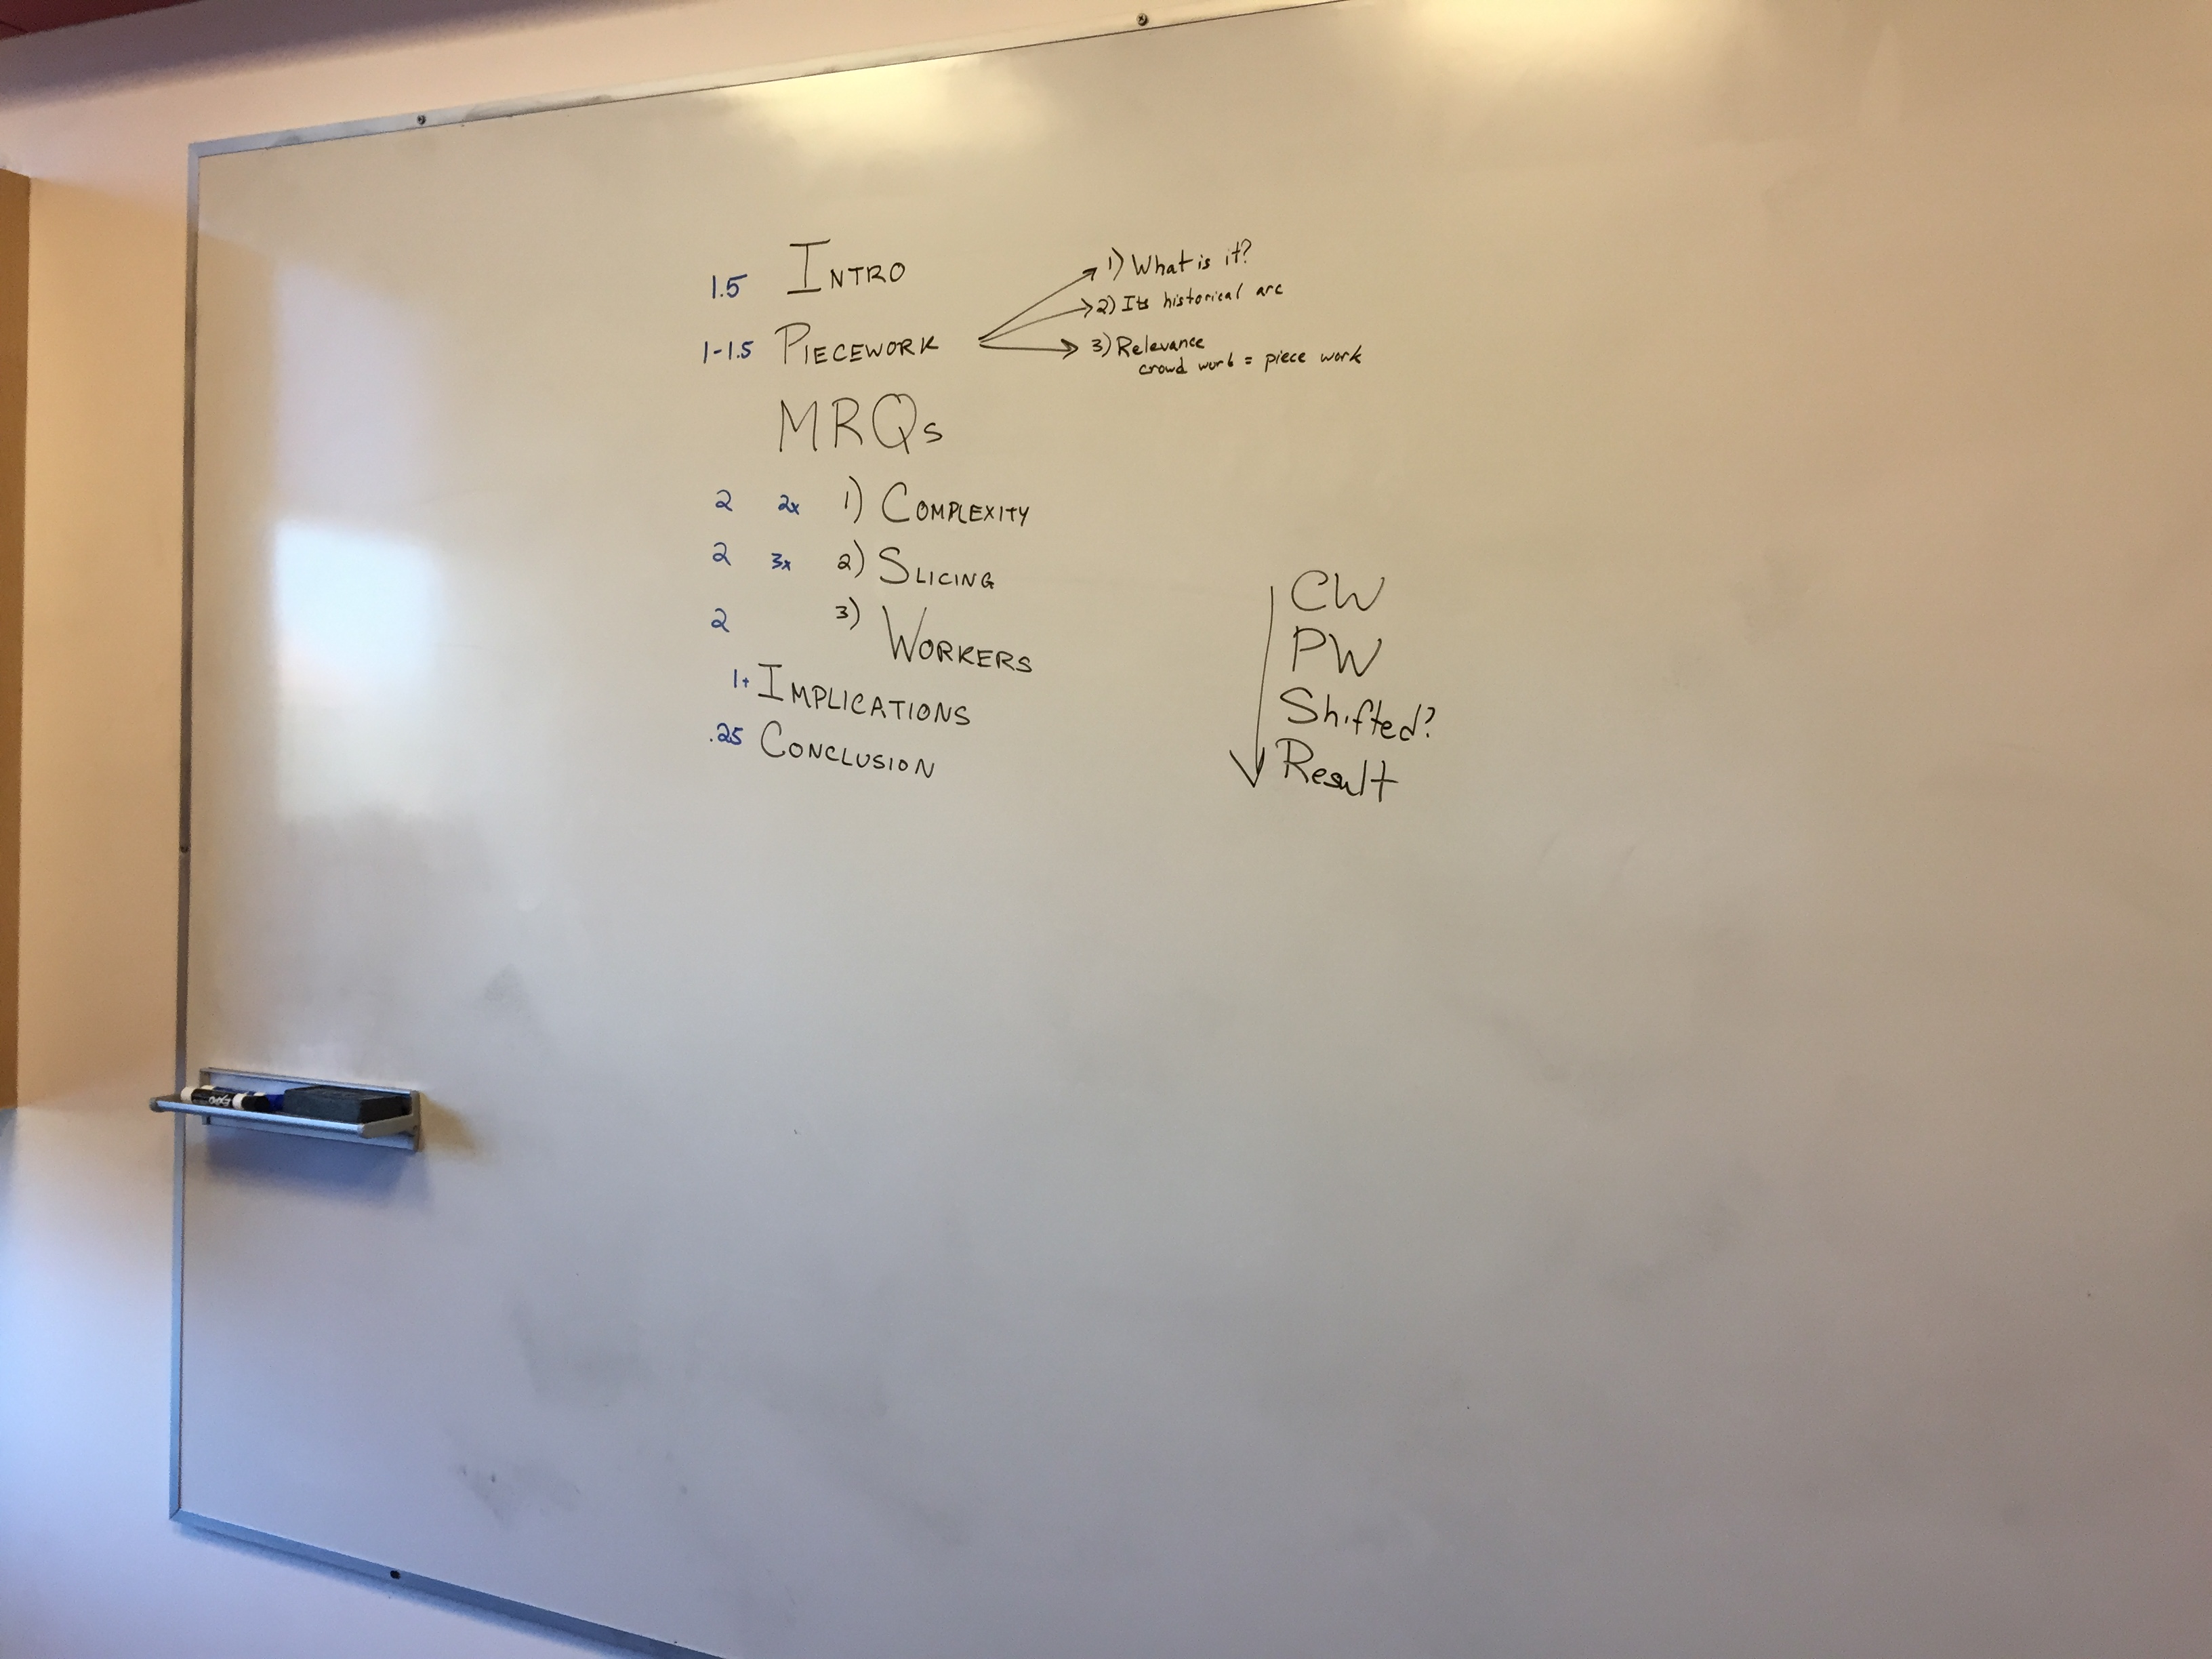 1.5 INTRO
1-1.5 PIECEWORK
1) What is it?
2) Its historical arc
3) Relevance
crowd work = piece work
MRQs
2 2x 1) COMPLEXITY
2 3x 2) SLICING
2 3) WORKERS
1+ IMPLICATIONS
.25 CONCLUSION
CW
PW
Shifted?
Result
EXPO